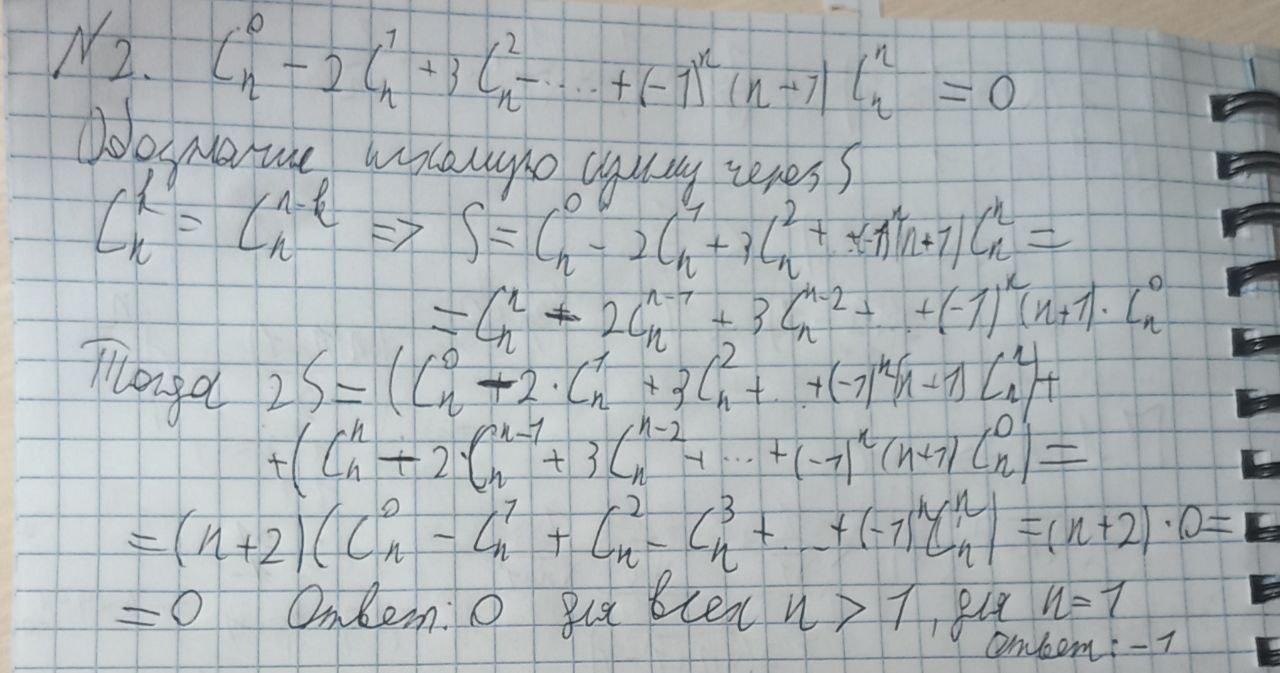 N2. C_n^0 - 2C_n^1 + 3C_n^2 - .... + (-1)^n (n+1) C_n^n = 0
Обозначие искомую сумму через S
C_n^k = C_n^{n-k} => S = C_n^0 - 2C_n^1 + 3C_n^2 + .. +(-1)^n (n+1) C_n^n =
= C_n^n - 2C_n^{n-1} + 3C_n^{n-2} + .. + (-1)^n (n+1) · C_n^0
Тогда 2S = (C_n^0 - 2 · C_n^1 + 3C_n^2 + .. + (-1)^n (n+1) C_n^n) +
+ (C_n^n - 2 · C_n^{n-1} + 3C_n^{n-2} + ... + (-1)^n (n+1) C_n^0) =
= (n+2) (C_n^0 - C_n^1 + C_n^2 - C_n^3 + ... + (-1)^n C_n^n) = (n+2) · 0 =
= 0 Ответ: 0 для всех n > 1, для n = 1
ответ: -1